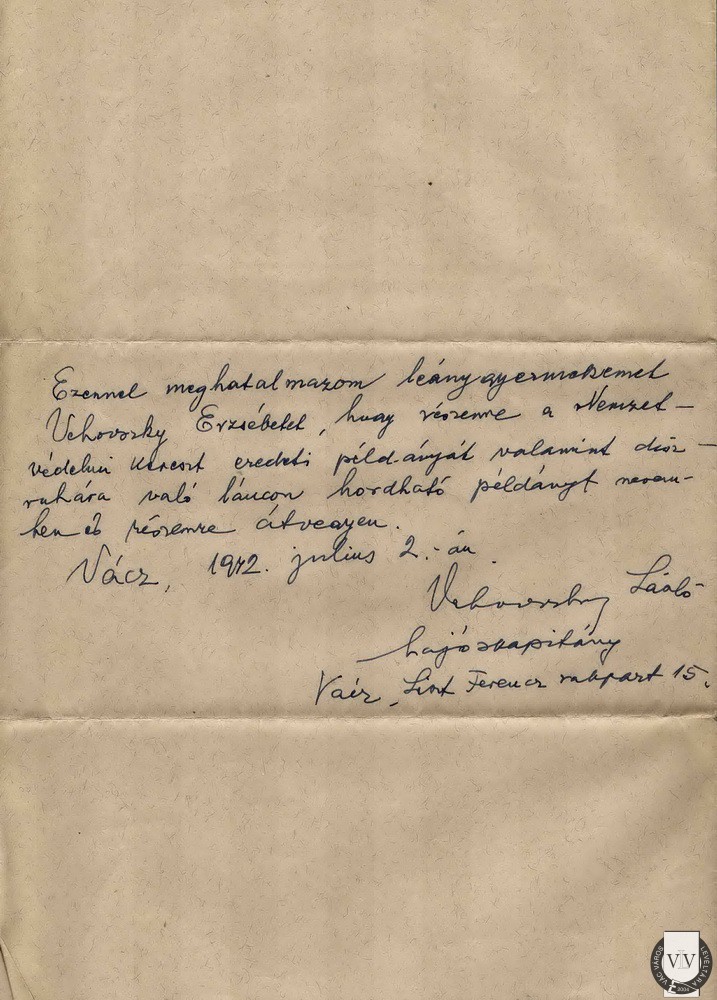 Ezennel meghatalmazom leánygyermekemet
Vehovszky Erzsébetet, hogy részemre a Nemzet-
védelmi Kereszt eredeti példányját valamint dísz-
ruhára való láncon hordható példányt nevem-
ben és részemre átvegyen.
Vácz, 1942. július 2.-án.
Vehovszky László
hajóskapitány
Vácz, Liszt Ferencz rakpart 15.
VÁC VÁROS LEVÉLTÁRA
VLV